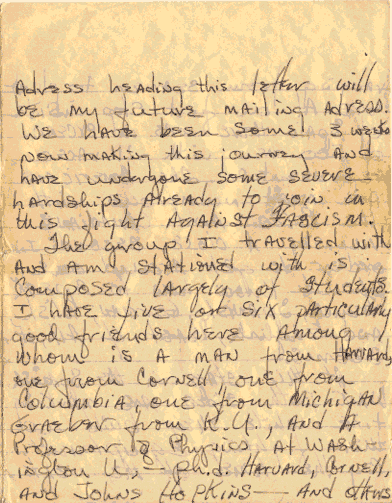 Adress heading this letter will
be my future mailing adress.
We have been some 3 weeks
now making this journey and
have undergone some severe
hardships already to join in
this fight against Fascism.
The group I travelled with
and am stationed with is
composed largely of students.
I have five or six particularly
good friends here among
whom is a man from Harvard,
one from Cornell, one from
Columbia, one from Michigan
from K.U., and a
Professor of Physics at Wash-
ington U., — Ph.d. Harvard, Cornell,
and Johns Hopkins — and others